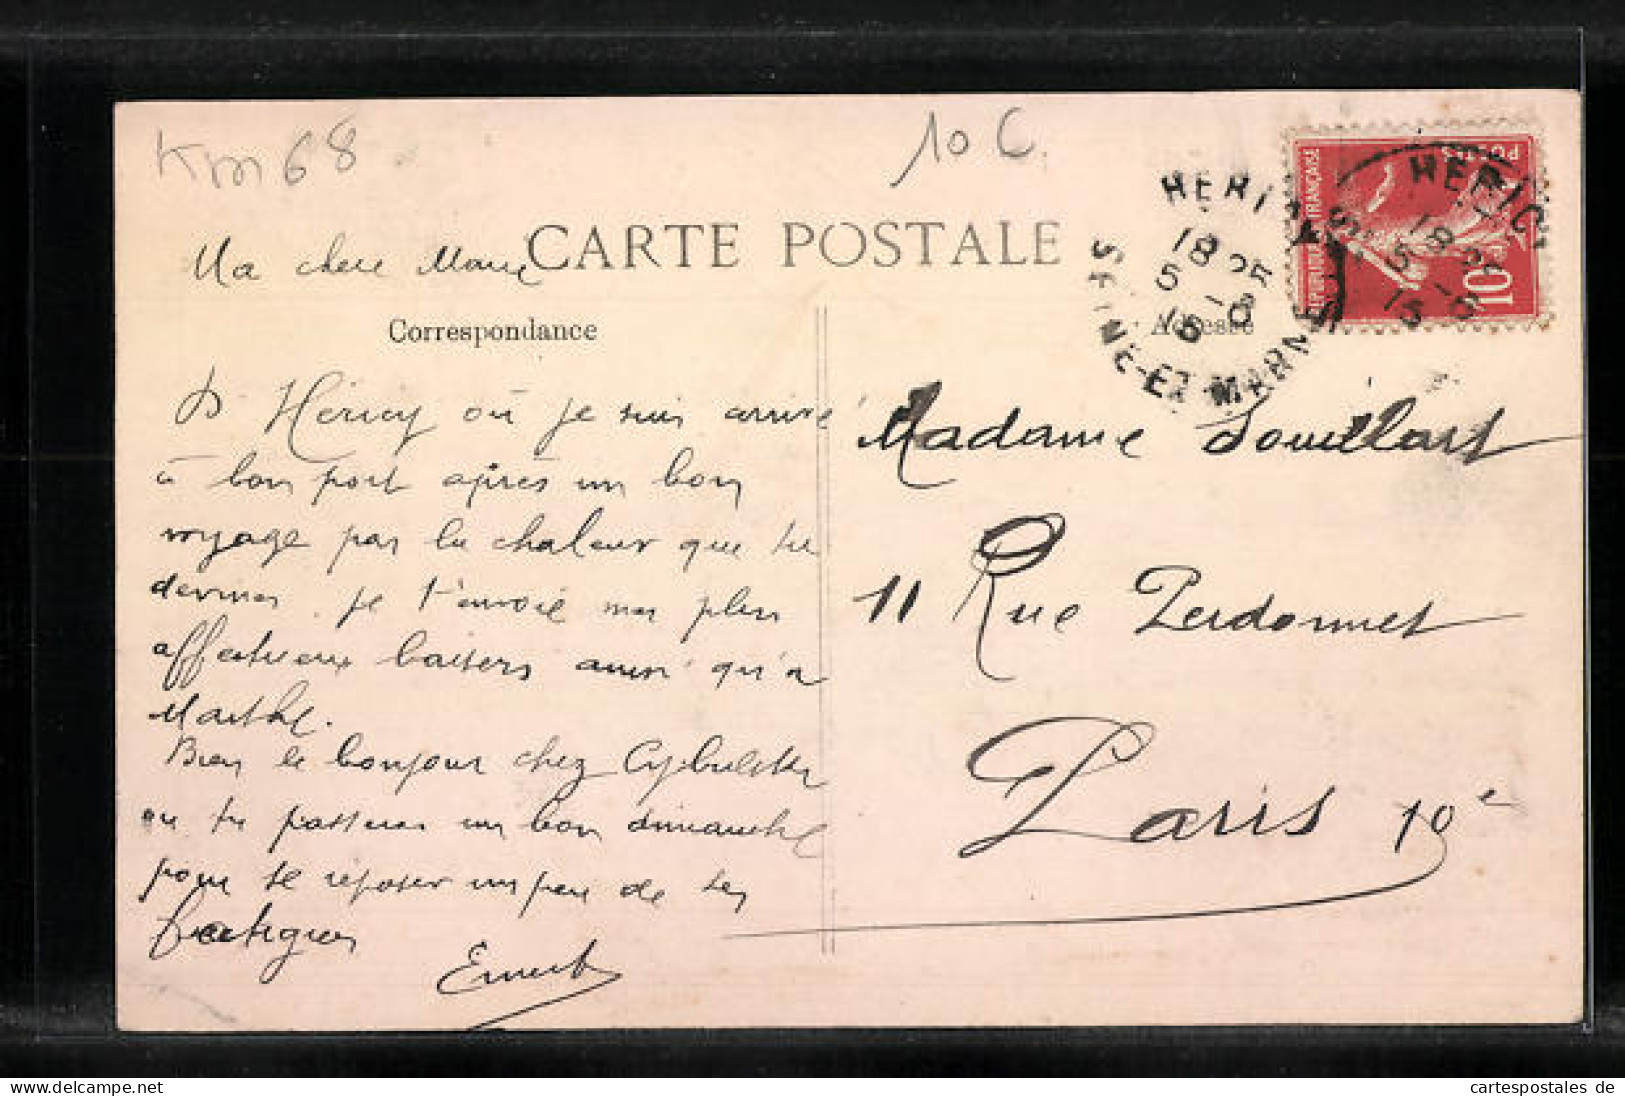 Km 68
10 €
CARTE POSTALE
Ma chère Marie
Correspondance
Adresse
HERICY
18 25
5 - 8
15
SEINE-ET-MARNE
HERICY
18 25
5 - 8
15
POSTES
REPUBLIQUE FRANÇAISE
10
Héricy où je suis arrivé
à bon port après un bon
voyage par la chaleur que tu
devines. je t'envoie mes plus
affectueux baisers ainsi qu'à
Marthe.
Bien le bonjour chez
ou tu passeras un bon dimanche
pour te reposer un peu de tes
fatigues
Ernest
Madame Souillart
11 Rue Perdonnet
Paris 10e
cartespostales de